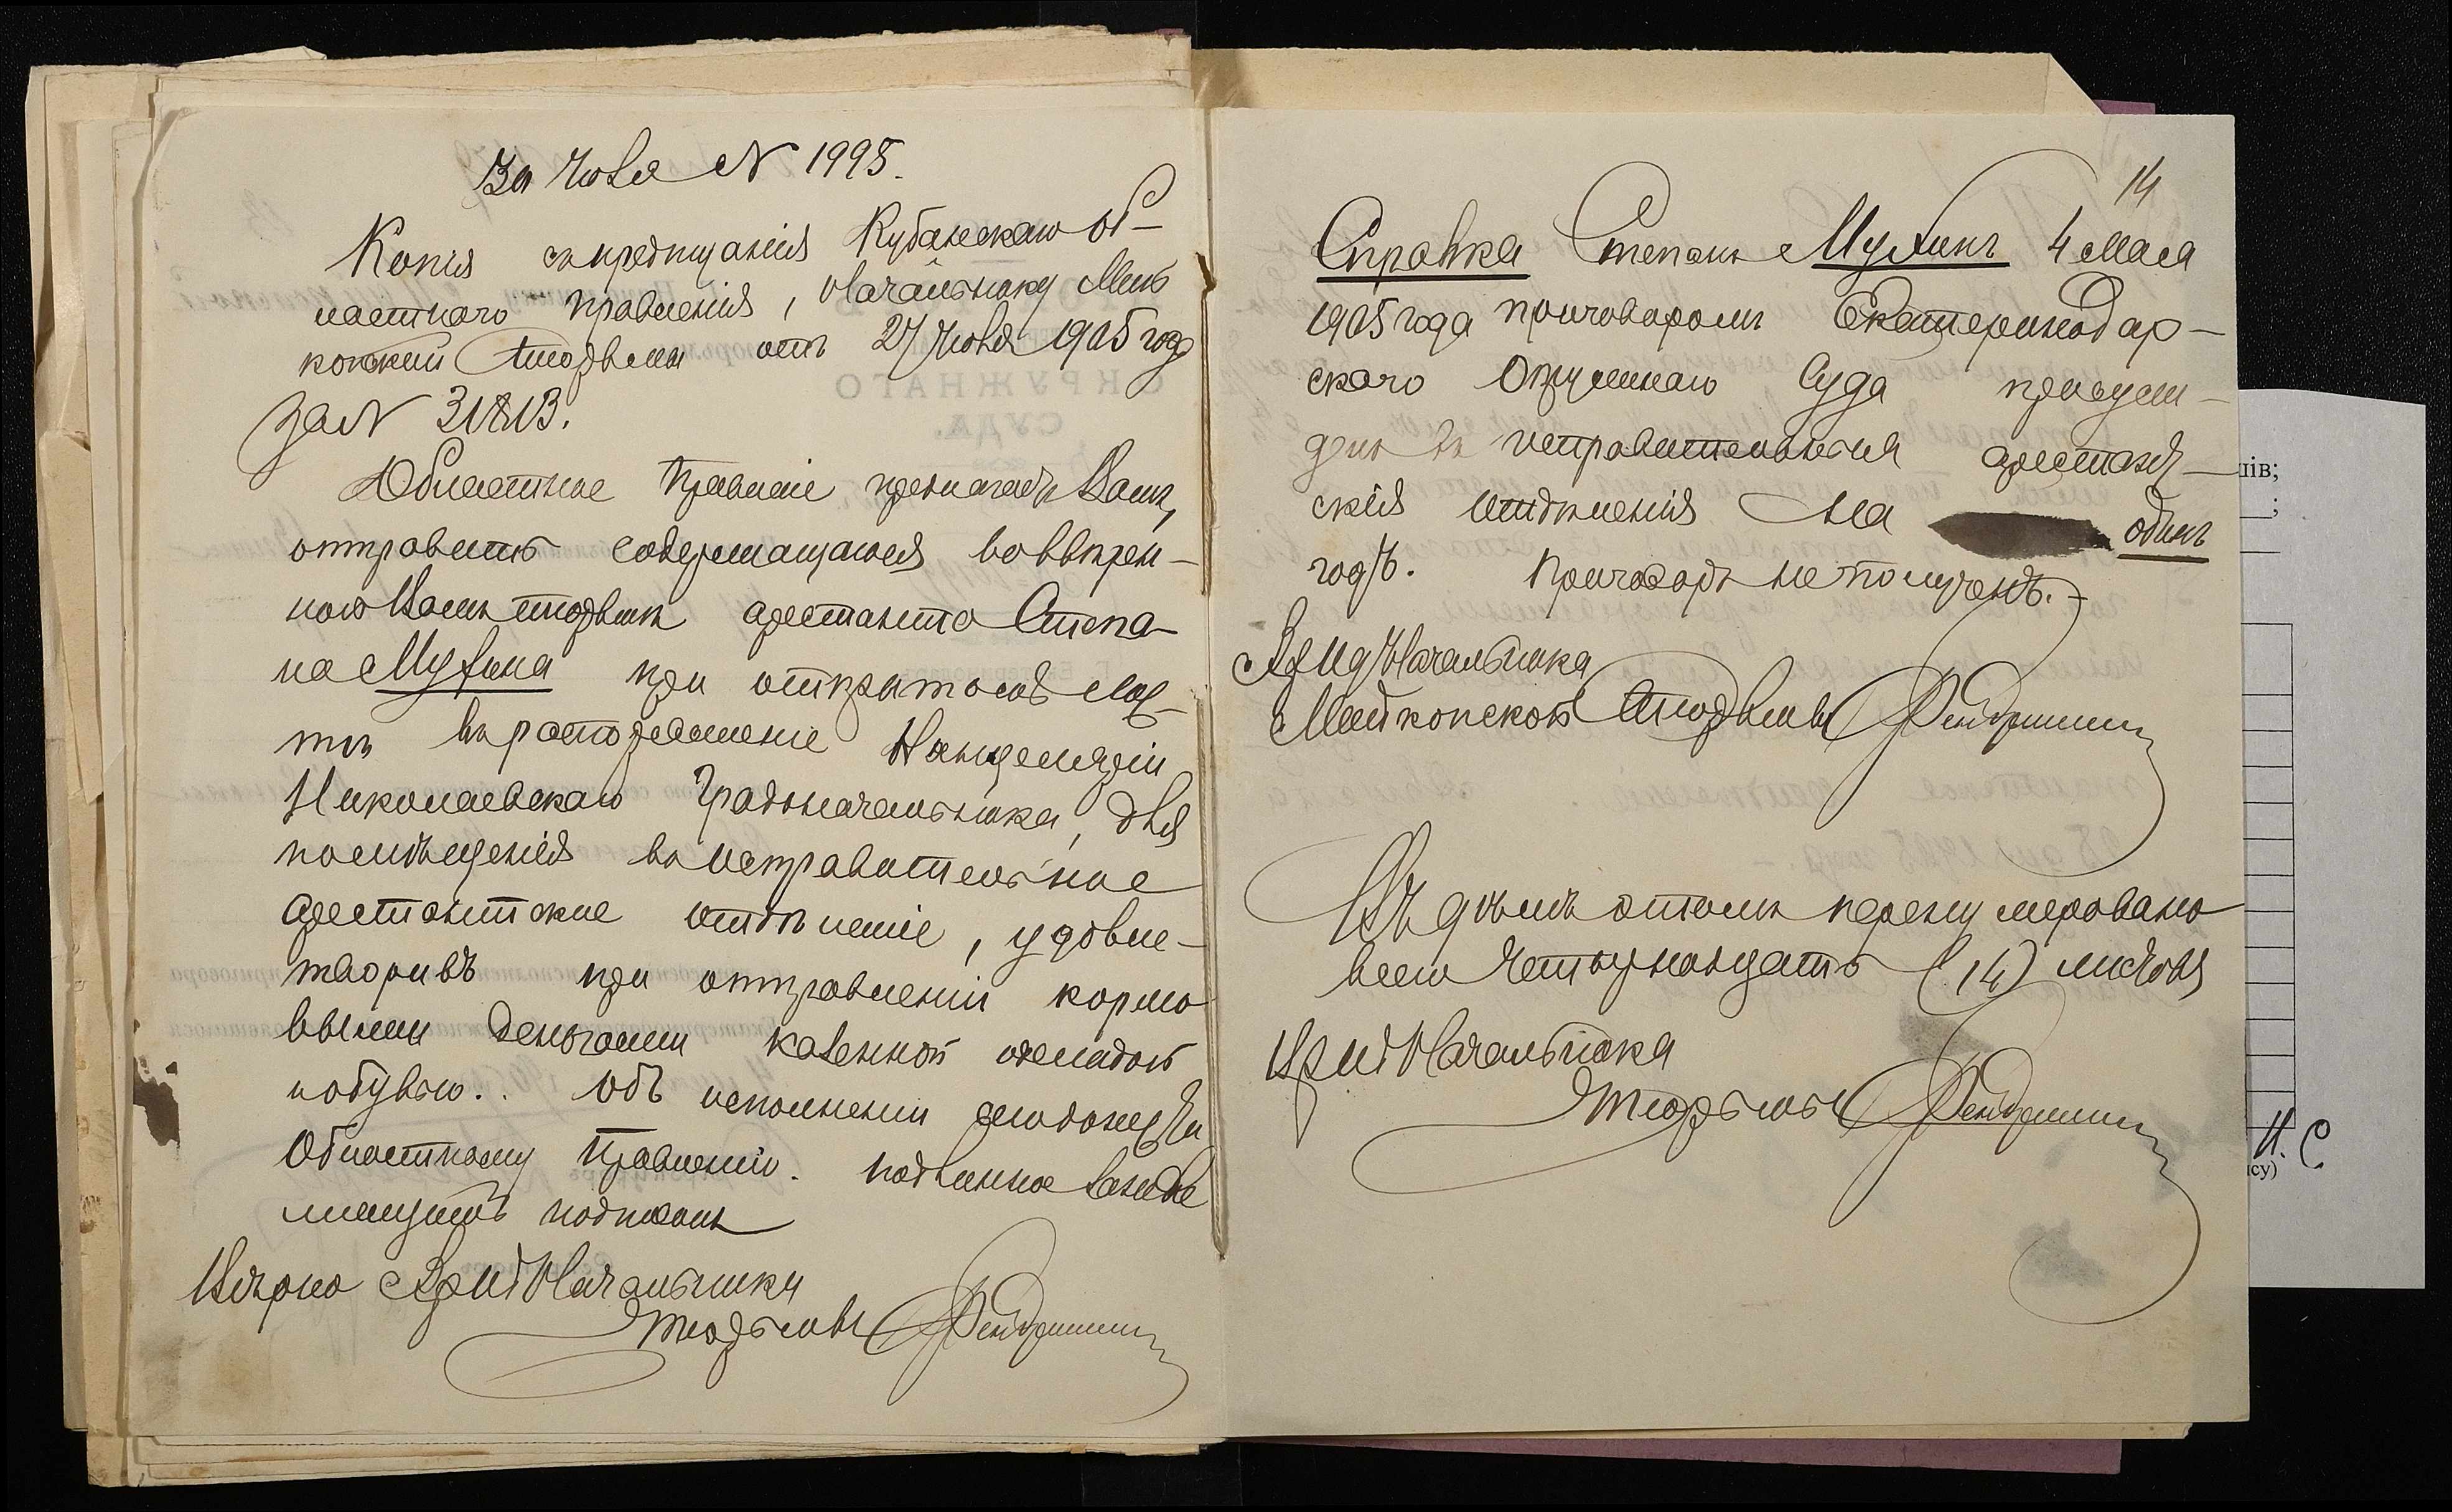 За Iюля N 1995.
Копiя съ предписанiя Кубанскаго об-
ластного Правленiя, Начальнику Май
копской Тюрьмы отъ 27 Iюня 1905 года
за N
Областное Правленiе предлагаетъ Вамъ,
отправить содержащагося во ввѣрен-
ной Вамъ тюрьмѣ арестанта Степа-
на Мухина при открытомъ лис-
тѣ въ распоряженiе Канцелярiи
Николаевскаго Градоначальника, для
помѣщенiя въ исправительное
арестантское отдѣленiе, удовле-
творивъ при отправленiи кормо
выми деньгами казенной одеждой
и обувью. Объ исполненiи донести
Областному Правленiю. Подлинное за надле
жащимъ подписомъ
Вѣрно Врид Начальника
Тюрьмы
14
Справка Степанъ Мухинъ 4 Мая
1905 года приговоромъ Екатеринодар-
скаго Окружнаго Суда присуж-
денъ въ исправительныя арестант-
скiя отдѣленiя на одинъ
годъ. Приговоръ не полученъ.-
Врид Начальника
Майкопской Тюрьмы
Въ дѣлѣ этомъ перенумеровано
всего четырнадцать (14) листовъ
Врид Начальника
Тюрьмы
лів;
;
И. С
ису)